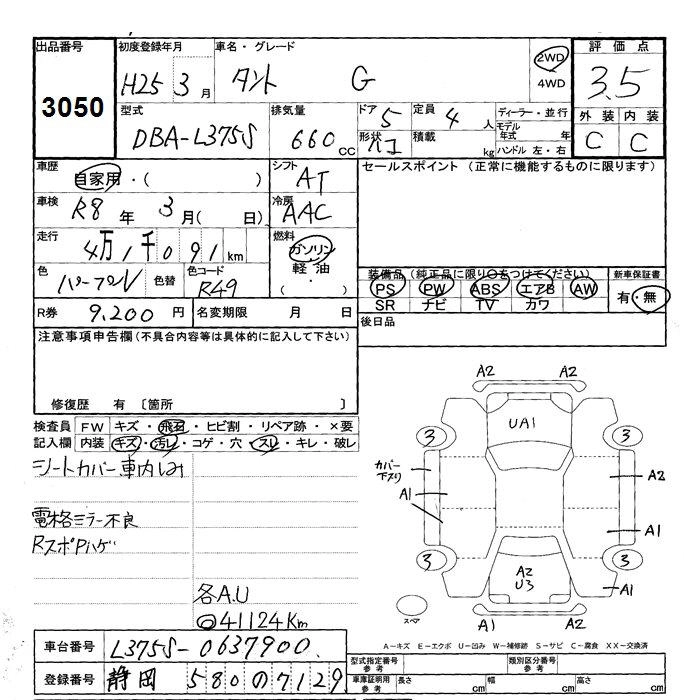 出品番号 初度登録年月 車名・グレード 2WD 評価点
3050 H25 3月 タント G 4WD 3.5
型式 排気量 ドア 5 定員 4人 ディーラー・並行 外装 内装
DBA-L375S 660cc 形状 積載 kg モデル年式 年 C C
ハンドル 左・右
車歴 自家用・( ) シフト AT セールスポイント (正常に機能するものに限ります)
車検 R8年 3月( 日) 冷房 AAC
走行 4万1千091km 燃料 ガソリン
軽油
・
( )
色 パープル 色替 色コード R49
装備品(純正品に限り○をつけてください) 新車保証書
PS PW ABS エアB AW 有・無
SR ナビ TV カワ
R券 9,200円 名変期限 月 日 後日品
注意事項申告欄(不具合内容等は具体的に記入して下さい)
修復歴 有 〔箇所 〕
検査員 FW キズ・飛石・ヒビ割・リペア跡・×要
記入欄 内装 キズ・汚レ・コゲ・穴・スレ・キレ・破レ
シートカバー車内しみ
電格ミラー不良
RスポPハゲ
各A.U
◎41124Km
A2 A2
UA1
3 3
カバー
下スリ
A1 A2
A1
3 3
A2
U3
A1
スペア
A1 A2
A-キズ E-エクボ U-凹み W-補修跡 S-サビ C-腐食 XX-交換済
車台番号 L375S-0637900.
登録番号 静岡 580 の 7129
型式指定番号 参考 類別区分番号 参考
車庫証明用 参考 長さ cm 幅 cm 高さ cm